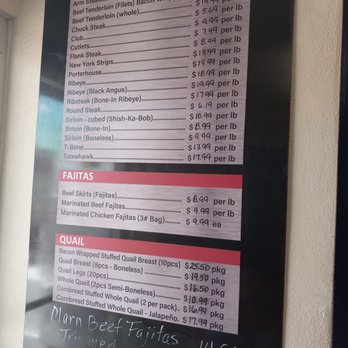 Arm Steak
Beef Tenderloin (Filets) Bacon
Beef Tenderloin (whole) per lb
Chuck Steak $5.69 per lb
Club $9.99 per lb
Cutlets $7.99 per lb
Flank Steak $8.99 per lb
New York Strips $14.99 per lb
Porterhouse $14.99 per lb
Ribeye $18.99 per lb
Ribeye (Black Angus) $19.99 per lb
Ribsteak (Bone-In Ribeye) $17.99 per lb
Round Steak $6.19 per lb
Sirloin - cubed (Shish-Ka-Bob) $10.99 per lb
Sirloin (Bone-In) $8.99 per lb
Sirloin (Boneless) $9.99 per lb
T-Bone $13.99 per lb
Tomahawk $17.99 per lb
FAJITAS
Beef Skirts (Fajitas) $8.99 per lb
Marinated Beef Fajitas $9.99 per lb
Marinated Chicken Fajitas (3# Bag) $9.99 ea
QUAIL
Bacon Wrapped Stuffed Quail Breast (10pcs) $25.50 pkg
Quail Breast (8pcs - Boneless) $19.50 pkg
Quail Legs (20pcs) $16.50 pkg
Whole Quail (2pcs Semi-Boneless) $10.99 pkg
Cornbread Stuffed Whole Quail (2 per pack) $16.99 pkg
Cornbread Stuffed Whole Quail - Jalapeño $17.99 pkg
Marn Beef Fajitas
Trimmed